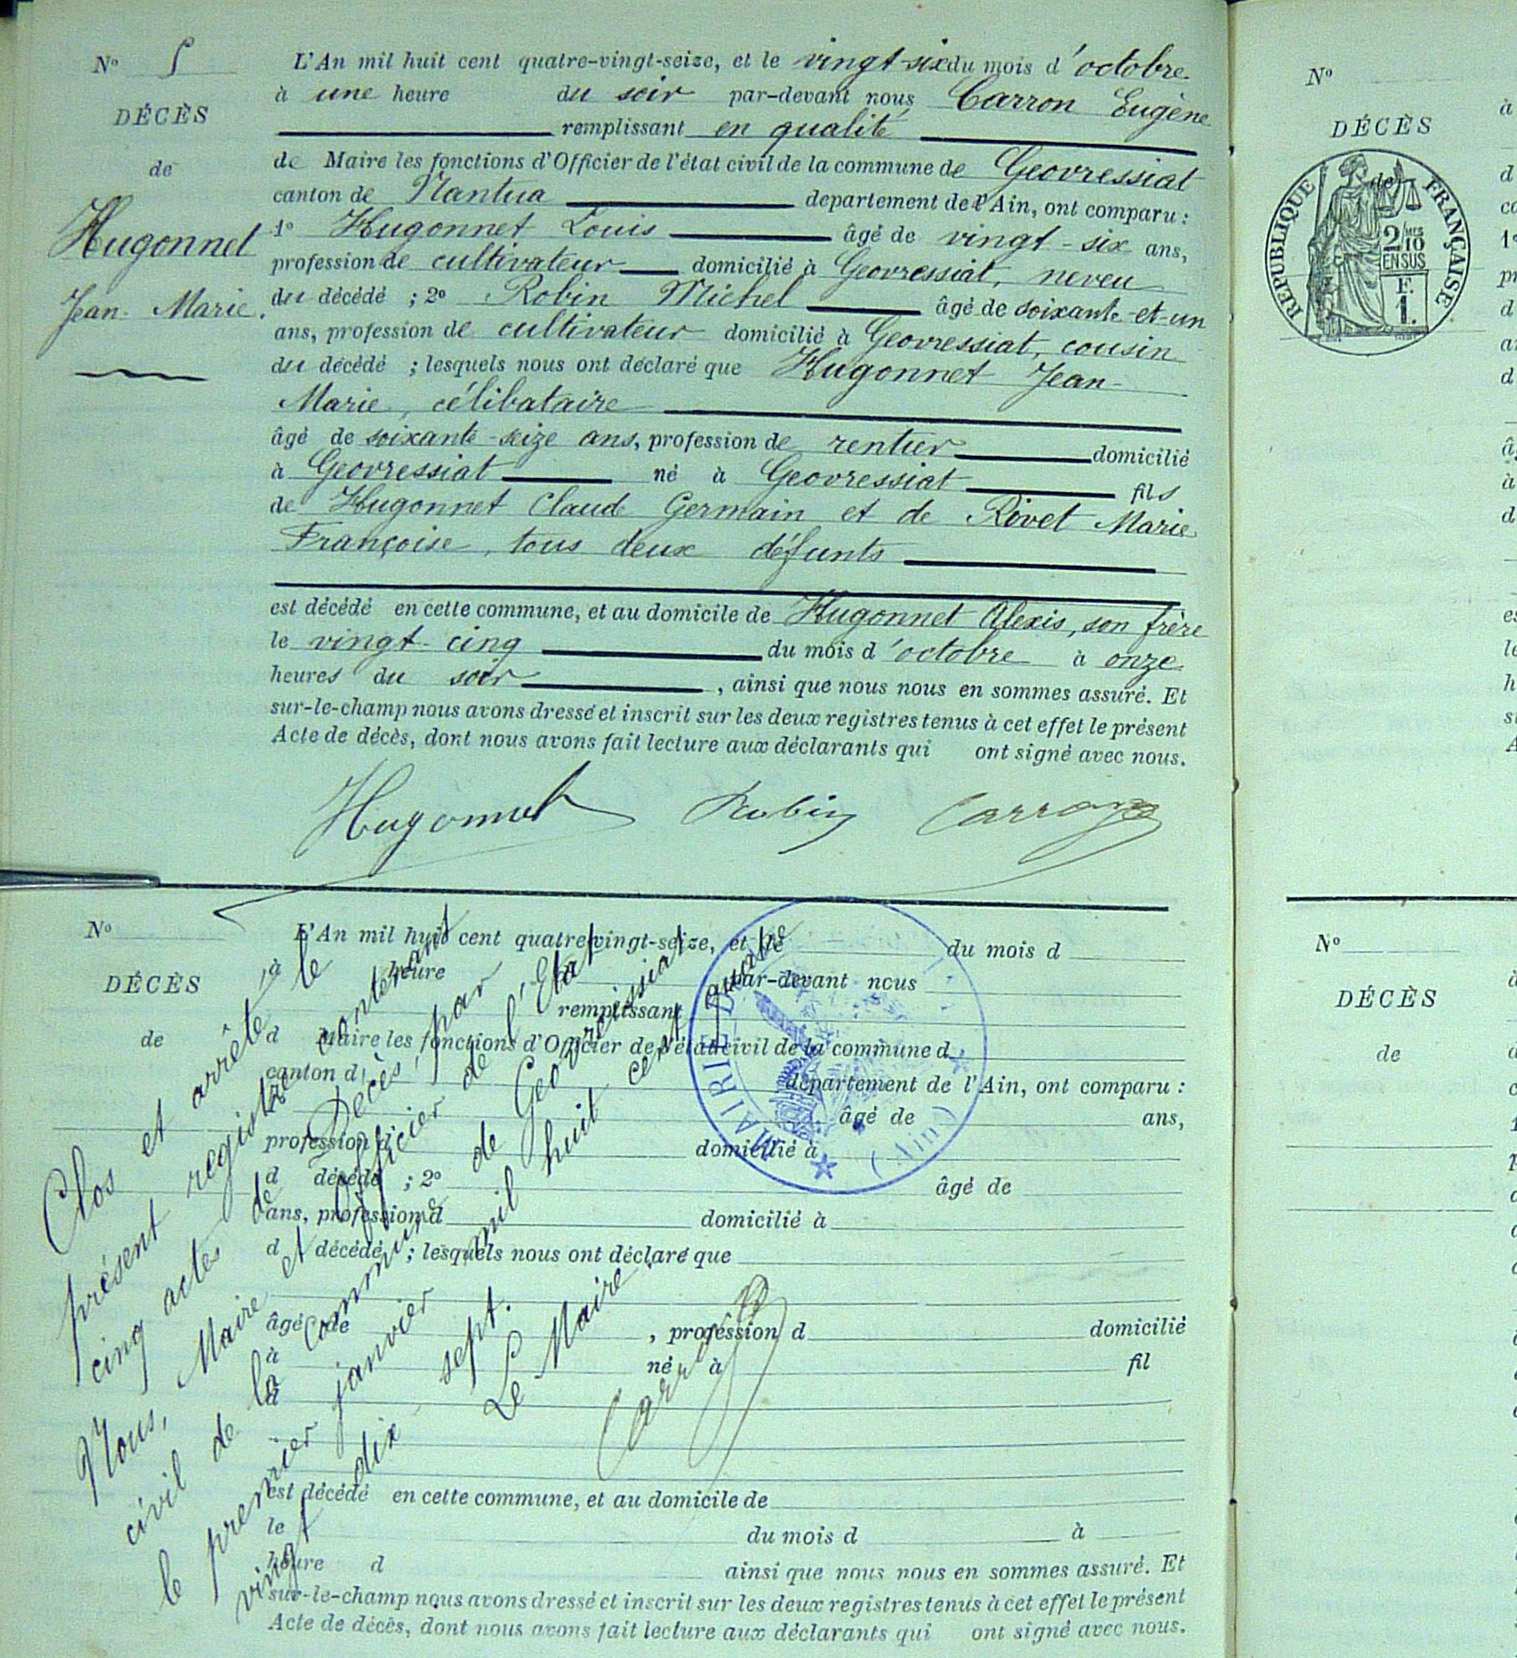 N° 5
DÉCÈS
de
Hugonnet
Jean-Marie.
L'An mil huit cent quatre-vingt-seize, et le vingt-six du mois d'octobre
à une heure du soir par-devant nous Carron Eugène
remplissant en qualité
de Maire les fonctions d'Officier de l'état civil de la commune de Geovressiat
canton de Nantua departement de l'Ain, ont comparu :
1° Hugonnet Louis âgé de vingt-six ans,
profession de cultivateur domicilié à Geovressiat, neveu
du décédé ; 2° Robin Michel âgé de soixante-et-un
ans, profession de cultivateur domicilié à Geovressiat, cousin
du décédé ; lesquels nous ont déclaré que Hugonnet Jean-
Marie, célibataire
âgé de soixante-seize ans, profession de rentier domicilié
à Geovressiat né à Geovressiat fils
de Hugonnet Claude Germain et de Rivet Marie
Françoise, tous deux défunts
est décédé en cette commune, et au domicile de Hugonnet Alexis, son frère
le vingt-cinq du mois d'octobre à onze
heures du soir, ainsi que nous nous en sommes assuré. Et
sur-le-champ nous avons dressé et inscrit sur les deux registres tenus à cet effet le présent
Acte de décès, dont nous avons fait lecture aux déclarants qui ont signé avec nous.
Hugonnet Robin Carron
N°
DÉCÈS
de
L'An mil huit cent quatre-vingt-seize, et le du mois d
à heure par-devant nous
remplissant
d Maire les fonctions d'Officier de l'état civil de la commune d
canton d département de l'Ain, ont comparu :
âgé de ans,
profession d domicilié à
d décédé ; 2° âgé de
ans, profession d domicilié à
d décédé ; lesquels nous ont déclaré que
âgé de , profession d domicilié
à né à fil
d
est décédé en cette commune, et au domicile de
le du mois d à
heure d ainsi que nous nous en sommes assuré. Et
sur-le-champ nous avons dressé et inscrit sur les deux registres tenus à cet effet le présent
Acte de décès, dont nous avons fait lecture aux déclarants qui ont signé avec nous.
Clos et arrêté, le
présent registre contenant
cinq actes de Décès, par
Nous, Maire et Officier de l'Etat
civil de la Commune de Geovreissiat
le premier janvier mil huit cent quatre
vingt dix sept.
Le Maire.
Carron
MAIRIE DE
(Ain)
N°
DÉCÈS
de
RÉPUBLIQUE FRANÇAISE
2/10
EN SUS
F.
1.
N°
DÉCÈS
de